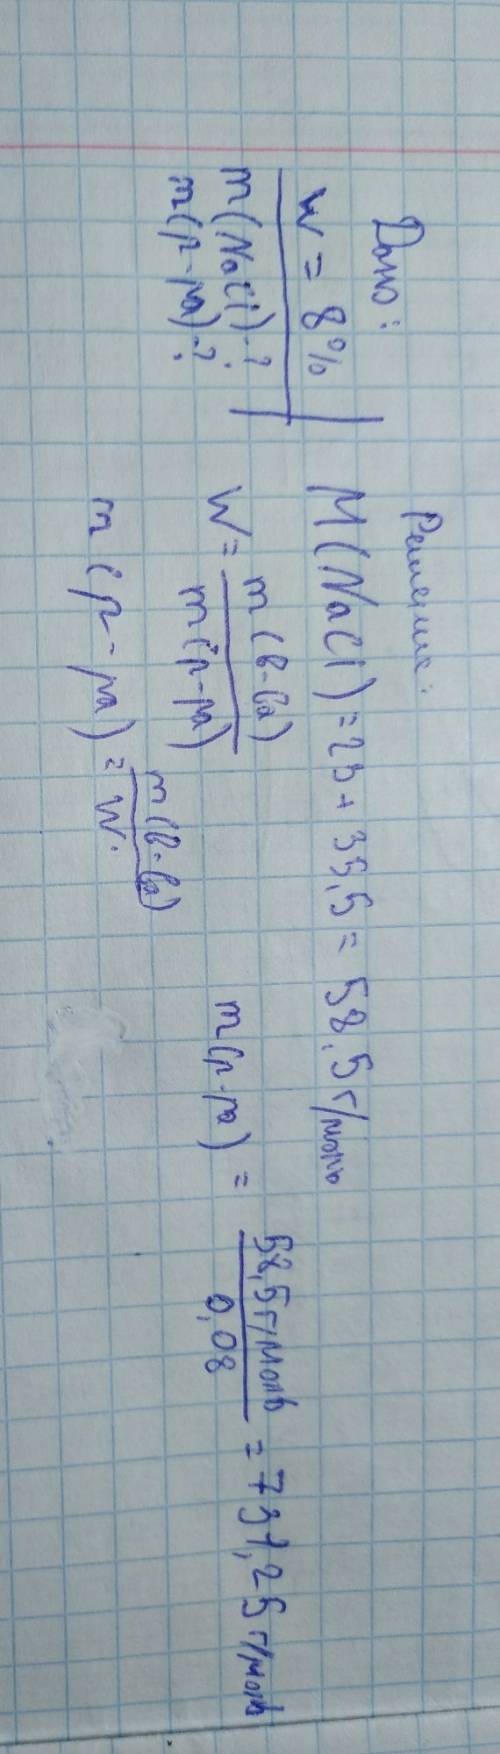 Дано:
w = 8%
m(NaCl)-?
m(р-ра)-?
Решение:
M(NaCl) = 23 + 35,5 = 58,5 г/моль
W = m(в-ва) / m(р-ра)
m(р-ра) = m(в-ва) / W.
m(р-ра) = 58,5 г/моль / 0,08 = 737,25 г/моль